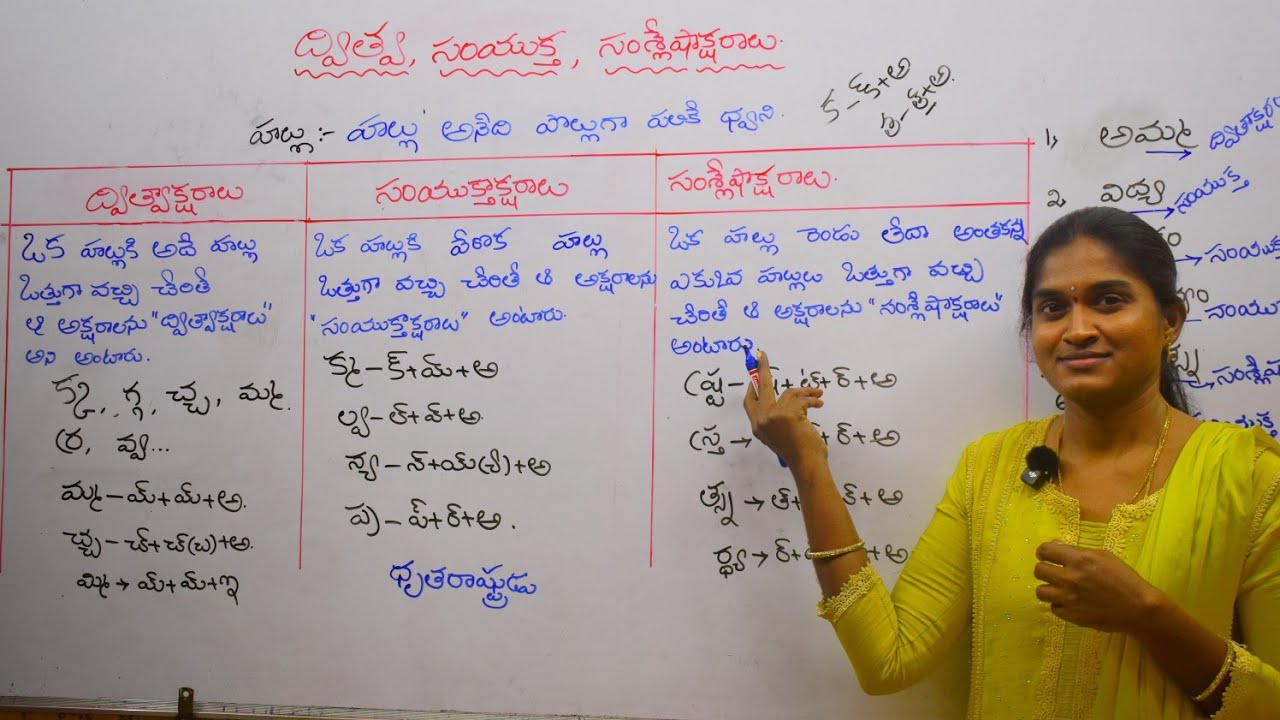 ద్విత్వ, సంయుక్త, సంశ్లేషాక్షరాలు.
హల్లు :- హల్లు అనేది పొల్లుగా పలికే ధ్వని.
క - క్+అ
ద్విత్వాక్షరాలు
ఒక హల్లుకి అదే హల్లు
ఒత్తుగా వచ్చి చేరితే
ఆ అక్షరాలను "ద్విత్వాక్షరాలు"
అని అంటారు.
క్క, గ్గ, చ్చ, మ్మ.
ర్ర, వ్వ...
మ్మ - మ్+మ్+అ.
చ్చ - చ్+చ్(చ)+అ.
మ్మి → మ్+మ్+ఇ
సంయుక్తాక్షరాలు
ఒక హల్లుకి వేరొక హల్లు
ఒత్తుగా వచ్చి చేరితే ఆ అక్షరాలను
"సంయుక్తాక్షరాలు" అంటారు.
క్మ - క్+మ్+అ
ల్వ - ల్+వ్+అ.
న్య - న్+య్()+అ
ప్ర - ప్+ర్+అ.
ధృతరాష్ట్రుడు
సంశ్లేషాక్షరాలు.
ఒక హల్లు రెండు లేదా అంతకన్నీ
ఎకువ హల్లులు ఒత్తుగా వచ్చి
చేరితే ఆ అక్షరాలను "సంశ్లేషాక్షరాలు"
అంటారు.
ష్ట్ర - +ట్+ర్+అ
స్త్ర → +ర్+అ
త్స్న → త్+ +అ
ర్థ్య → ర్+ +అ
1, అమ్మ → ద్విత్వాక్షర
2. విద్య → సంయుక్త
→ సంయుక్
సంయు
→ సంశ్లేష